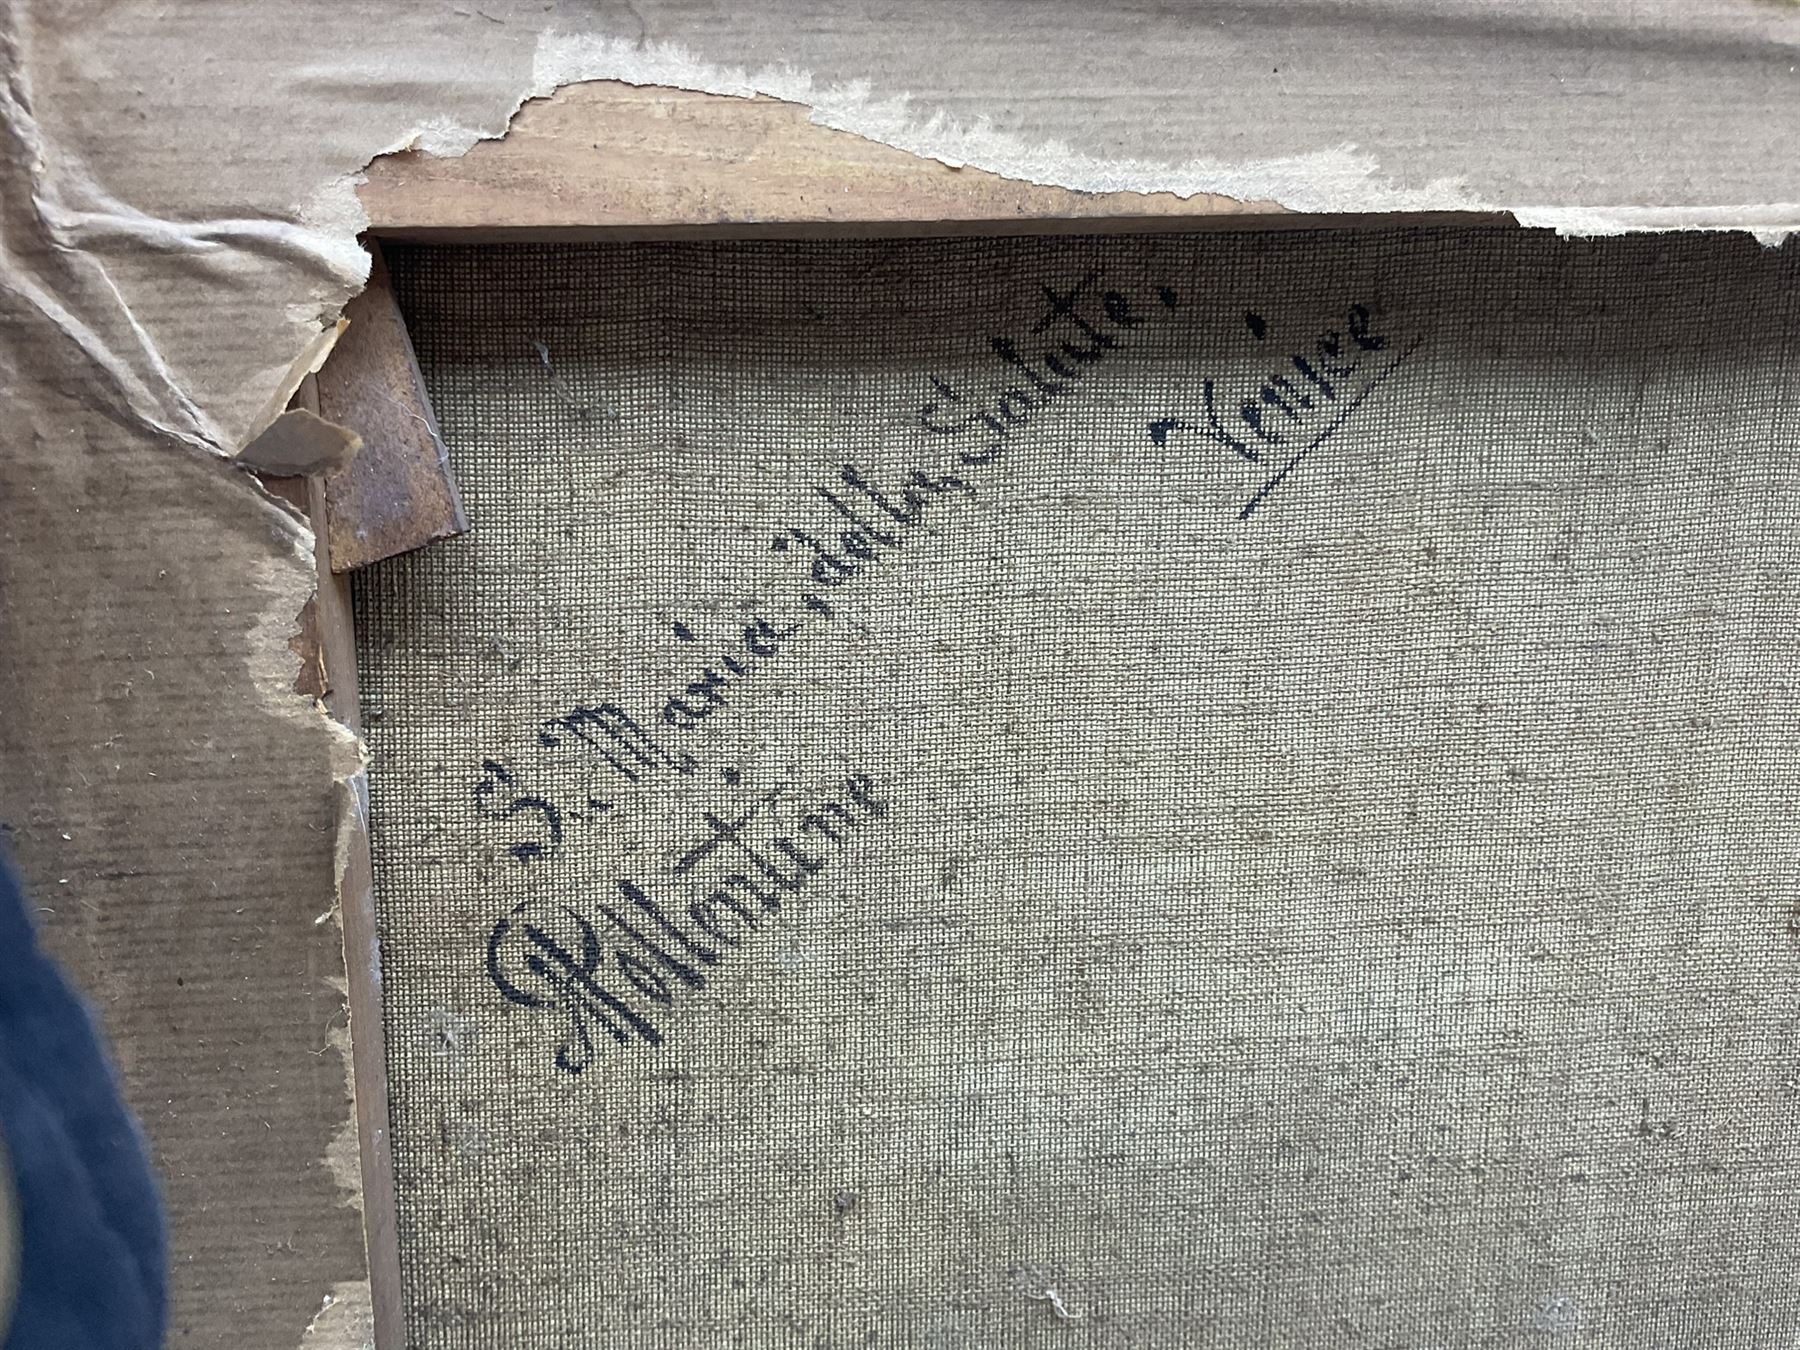 S. Maria, della Salute,
Venice